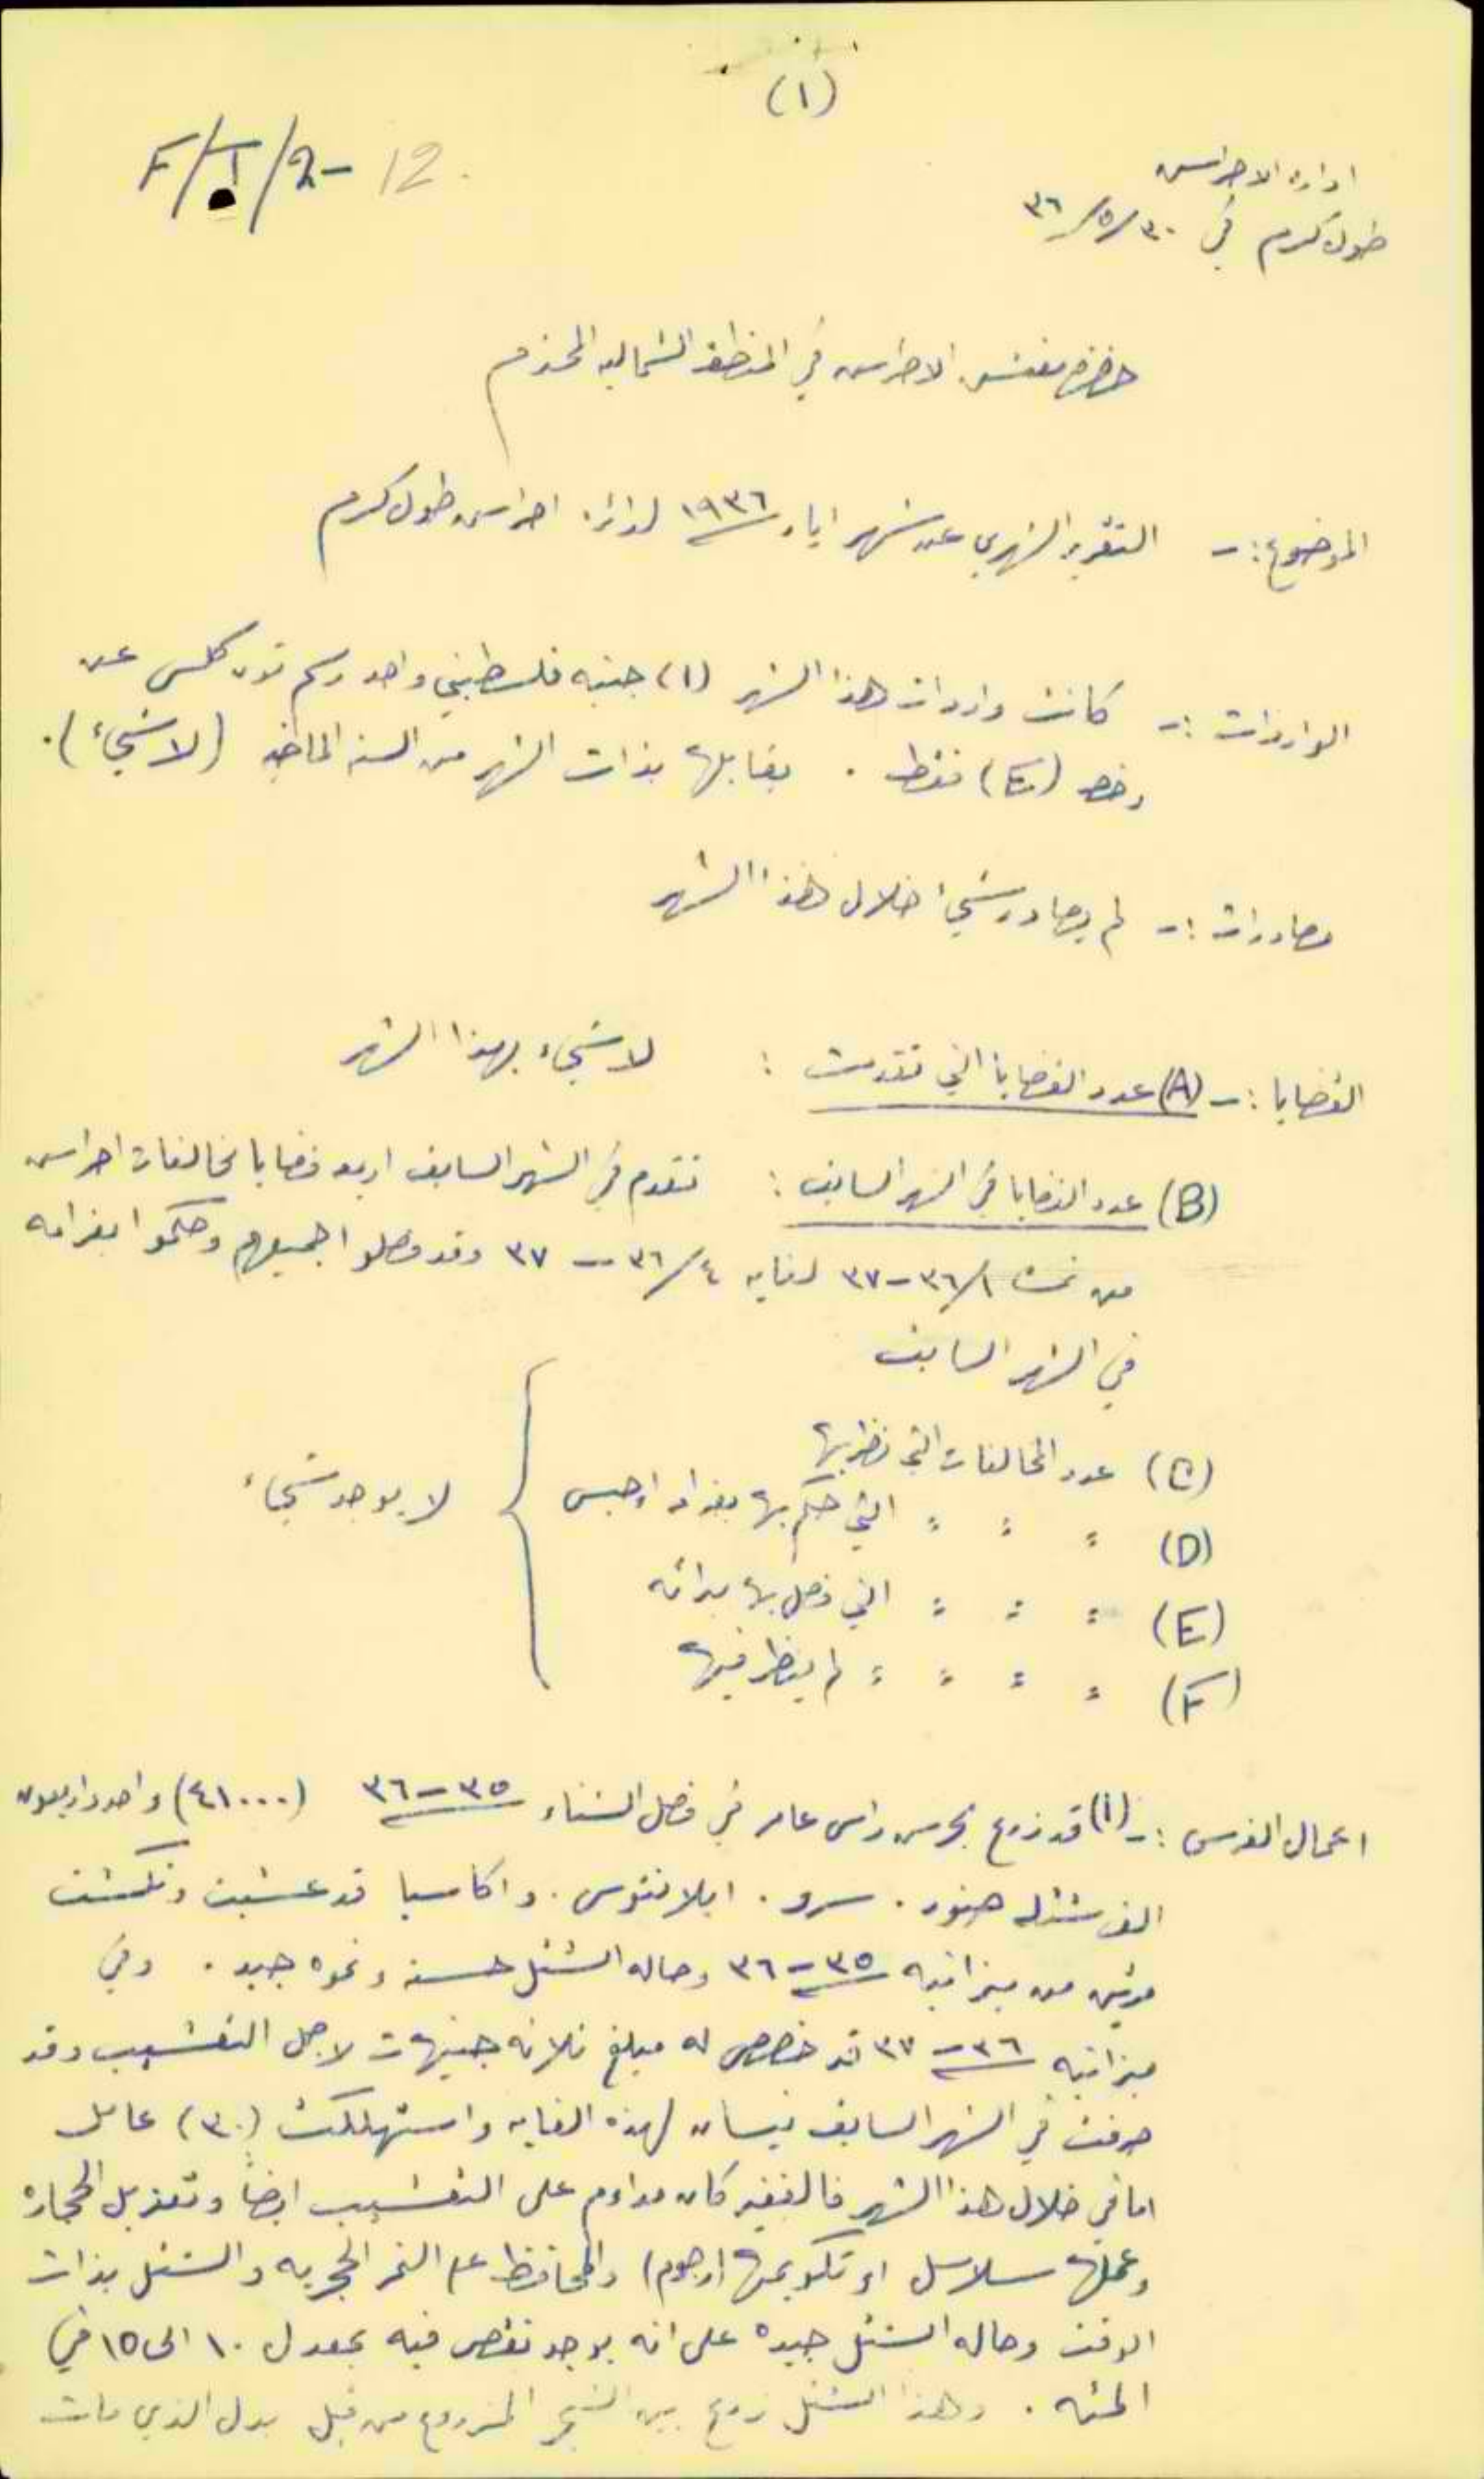 (١)
F/1/2-12
ادارة الاحراش
طولكرم في ٣٠/٥/٣٦
حضرة مفتش الاحراش في المنطقة الشماليه المحترم
الموضوع :- التقرير الشهري عن شهر ايار ١٩٣٦ لدائرة احراش طولكرم
الواردات :- كانت واردات هذا الشهر (١) جنيه فلسطيني واحد رسم اتون كلس عن
رخصه فقط . يقابلها بذات الشهر من السنه الماضيه (لا شيء) .
مصادرات :- لم يصادر شيء خلال هذا الشهر
القضايا :- (A) عدد القضايا التي تقدمت : لا شيء بهذا الشهر
(B) عدد القضايا في الشهر السابق : تقدم في الشهر السابق اربع قضايا مخالفات احراش
من نمرة ١/٣٦-٣٧ لغاية ٤/٣٦-٣٧ وقد فصلو اجميعهم وحكموا بغرامه
في الشهر السابق
(C) عدد المخالفات التي نظر بها
(D) " " " التي حكم بها بغرامه او حبس
(E) " " " التي فصل بها برائه
(F) " " " " لم ينظر فيها
لا يوجد شيء
اعمال الغرس :- (١) قد زرع بحرش راس عامر في فصل الشتاء ٣٥-٣٦ (٤١٠٠٠) واحد واربعون
الف شتله صنوبر . سرو . ايلانتوس . واكاسيا قد عشبت ونكشت
مرتين من ميزانيه ٣٥-٣٦ وحاله الشتل حسنه ونموه جيد . وفي
ميزانيه ٣٦-٣٧ قد خصص له مبلغ ثلاثه جنيهات لاجل التعشيب وقد
صرفت في الشهر السابق نيسان لهذه الغايه واستهلكت (٣٠) عامل
اما في خلال هذا الشهر فالغفير كان مداوم على التعشيب ايضاً وتعزيل الحجاره
وعملها سلاسل او تكويمها (رجوم) والمحافظه على النمر الحجريه والشتل بذات
الوقت وحاله الشتل جيده على انه يوجد نقص فيه بمعدل ١٠ الى ١٥ في
المئه . وهذا الشتل زرع بين الشجر المزروع من قبل بدل الذي مات